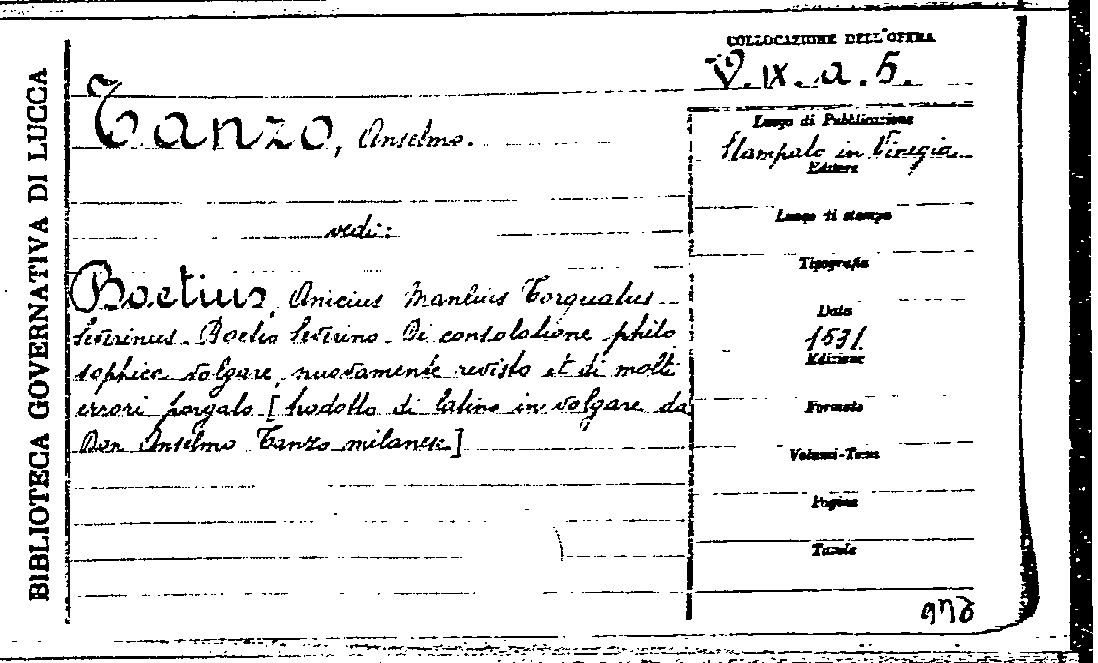 BIBLIOTECA GOVERNATIVA DI LUCCA
COLLOCAZIONE DELL'OPERA
V. IX. a. 5.
Tanzo, Anselmo.
vedi:
Boetius, Anicius Manlius Torquatus
Severinus. Boetio Severino. Di consolatione philo
sophica volgare, nuovamente revisto et di molti
errori porgato [tradotto di latino in volgare da
Don Anselmo Tanzo milanese]
Luogo di Pubblicazione
Stampato in Vinegia
Editore
Luogo di stampa
Tipografia
Data
1531
Edizione
Formato
Volumi-Tomi
Pagine
Tavole